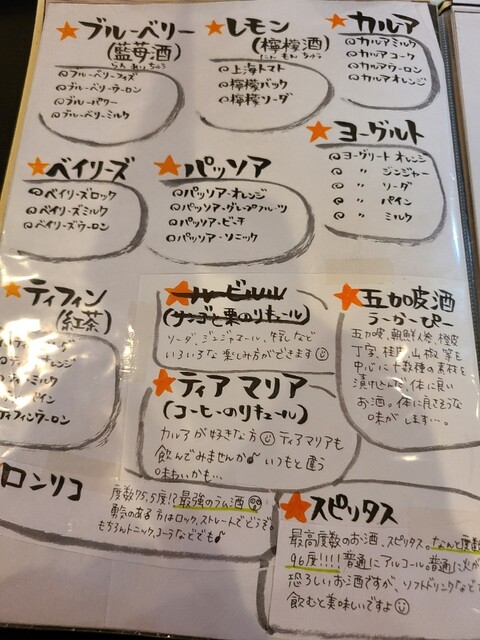 ブルーベリー
(藍苺酒)
らんめいちゅう
@ブルーベリーフィズ
@ブルーベリーウーロン
@ブルーパワー
@ブルーベリーミルク
レモン
(檸檬酒)
@上海トマト
@檸檬バック
@檸檬ソーダ
カルア
@カルアミルク
@カルアコーク
@カルアウーロン
@カルアオレンジ
ヨーグルト
@ヨーグリート オレンジ
@ 〃 ジンジャー
@ 〃 ソーダ
@ 〃 パイン
@ 〃 ミルク
ベイリーズ
@ベイリーズロック
@ベイリーズミルク
@ベイリーズウーロン
パッソア
@パッソア-オレンジ
@パッソア-グレープフルーツ
@パッソア-ピーチ
@パッソア-ソニック
ティフィン
(紅茶)
ミルク
パイン
ティフィンウーロン
ルービルル
(リンゴと栗のリキュール)
ソーダ、ジンジャエール、牛乳など
いろいろな楽しみ方ができます
ティア マリア
(コーヒーのリキュール)
カルアが好きな方 ティアマリアも
飲んでみませんか♪ いつもと違う
味わいかも…
五加皮酒
うーかーぴー
五加皮、朝鮮人参、橙皮
丁字、桂皮、山椒 等を
中心に十数種の素材を
漬け込んだ、体に良い
お酒。体に良さそうな
味がします…。
ロンリコ
度数75.5度!?最強のラム酒
勇気のある方はロック、ストレートでどうぞ。
もちろんトニック、コーラなどでも♪
スピリタス
最高度数のお酒、スピリタス。なんと度数
96度!!!!普通にアルコール。普通に火が
恐ろしいお酒ですが、ソフトドリンクなどで
飲むと美味しいですよ